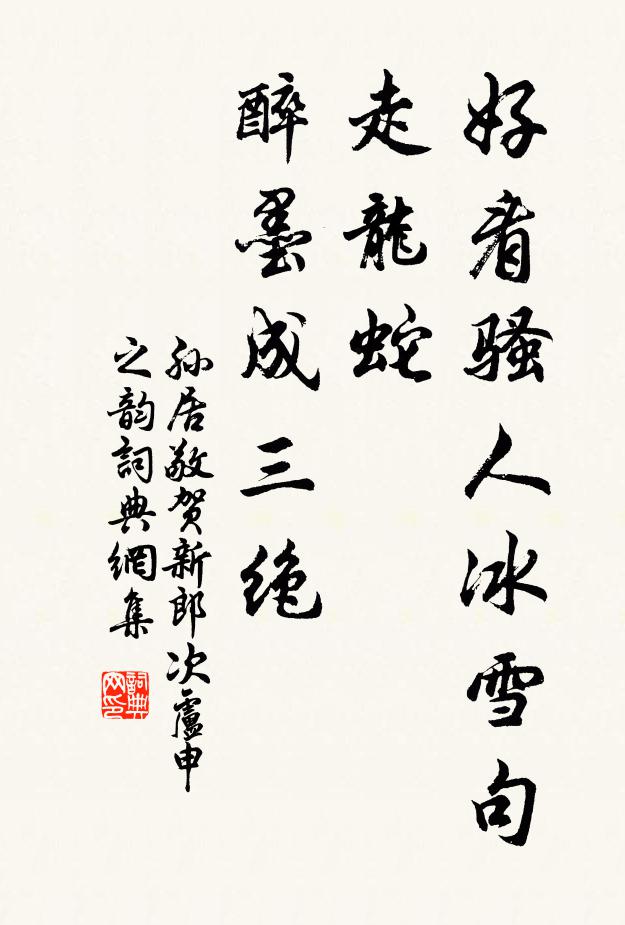 好看骚人冰雪句
走龍蛇
醉墨成三绝
孙居敬贺新郎次盧申
之韵詞典網集
詞典网印